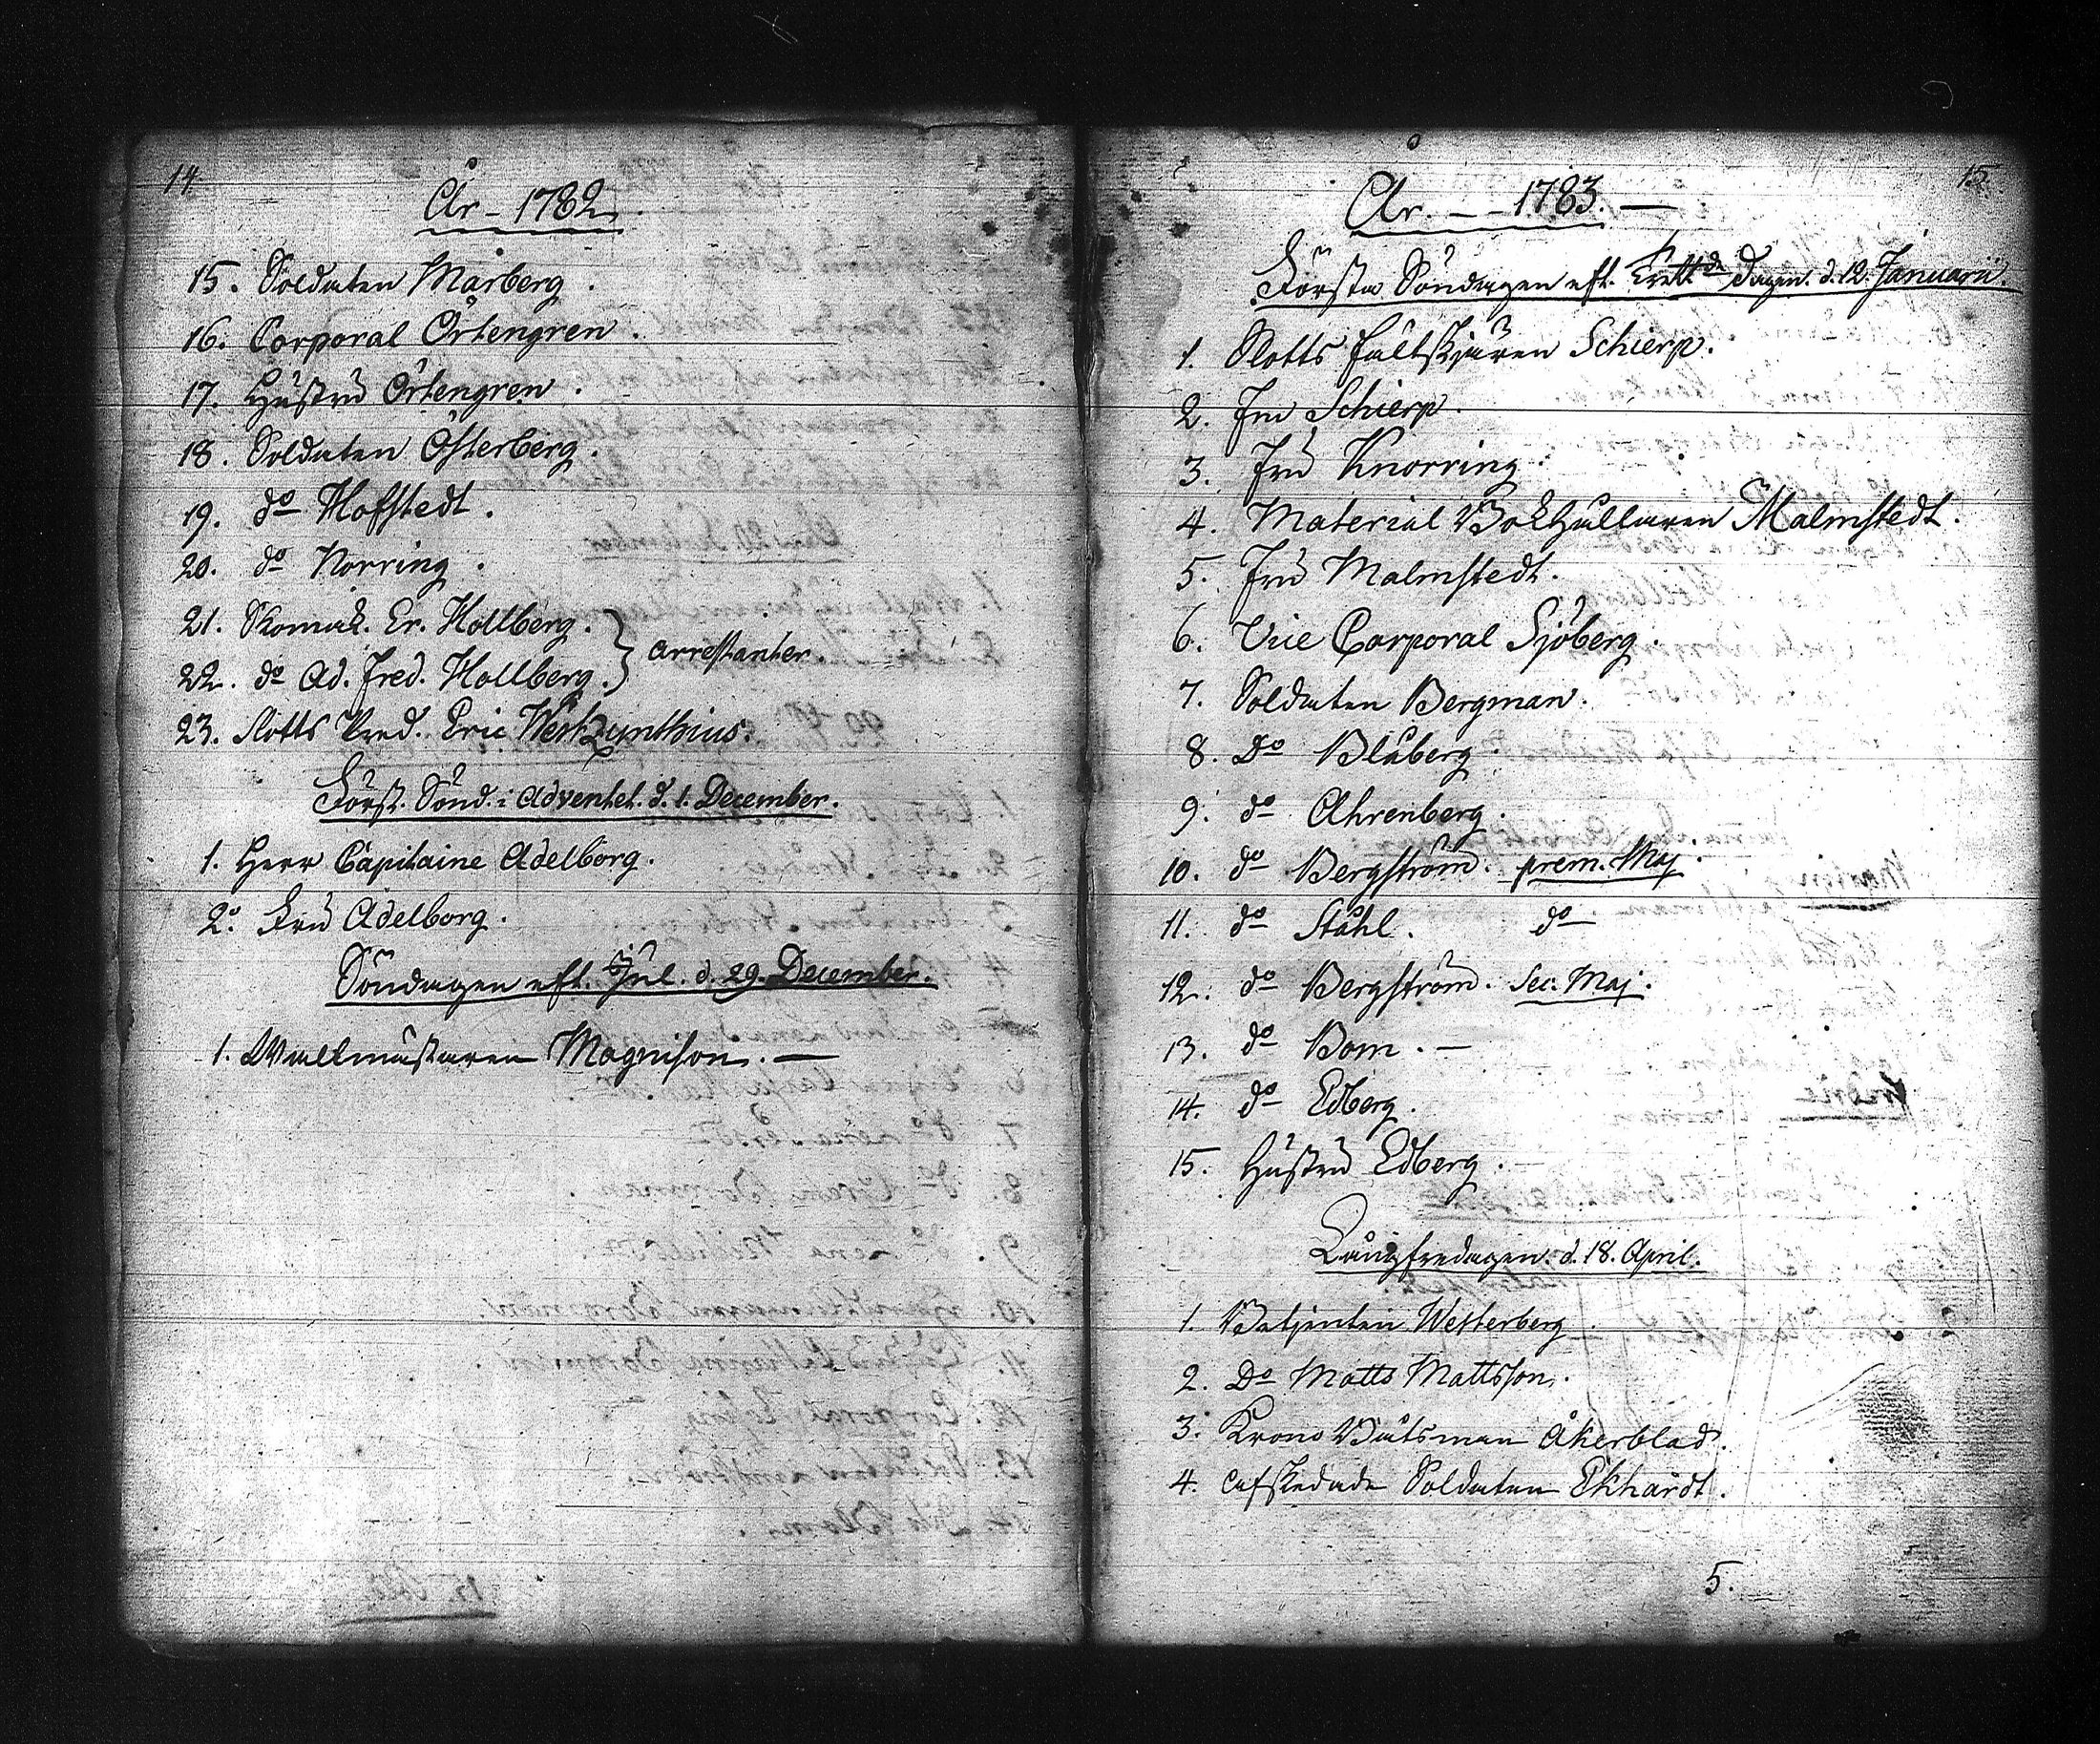 14.
År - 1782.
15. Soldaten Mårberg.
16. Corporal Örtengren.
17. Hustru Örtengren.
18. Soldaten Österberg.
19. do Hofstedt.
20. do Norring.
21. Skomak. Er. Hollberg.
arrestanter.
22. do Ad. Fred. Hollberg.
23. Slotts Pred. Eric Westzynthius.
Först. Sönd. i Adventet. d. 1. December.
1. Herr Capitaine Adelborg.
2. Fru Adelborg.
Söndagen eft. Jul. d. 29. December.
1. Wallmästaren Magnison. —
15.
År. - - 1783. —
Första Söndagen eft. Trett de Dagen. d. 12. Januarii.
1. Slotts Fältskjären Schierp.
2. Fru Schierp.
3. Fru Knorring.
4. Material Bokhållaren Malmstedt.
5. Fru Malmstedt.
6. Vice Corporal Sjöberg.
7. Soldaten Bergman.
8. Do Blåberg.
9. do Ahrenberg.
10. do Bergström. prem. Maj.
11. do Ståhl. do
12. do Bergström. Sec. Maj.
13. do Bom. —
14. do Edberg.
15. Hustru Edberg.
Långfredagen. d. 18. April.
1. Betjenten Westerberg
2. Do Matts Mattsson.
3. Krono Båtsman Åkerblad.
4. afskedade Soldaten Ekhardt.
5.